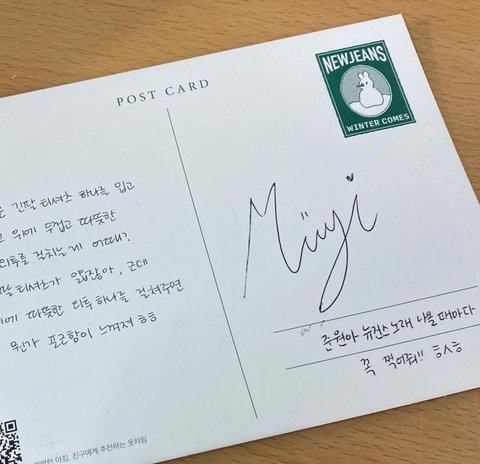 POST CARD
NEWJEANS
WINTER COMES
긴팔 티셔츠 하나를 입고
위에 두껍고 따뜻한
외투를 걸치는게 어때?
티셔츠가 얇잖아, 근데
에 따뜻한 외투 하나를 걸쳐주면
뭔가 포근함이 느껴져 ㅎㅎ
아침, 친구에게 추천하는 옷차림
Minji
준원아 뉴진스 노래 나올 때마다
꼭 찍어줘!! ㅎㅅㅎ